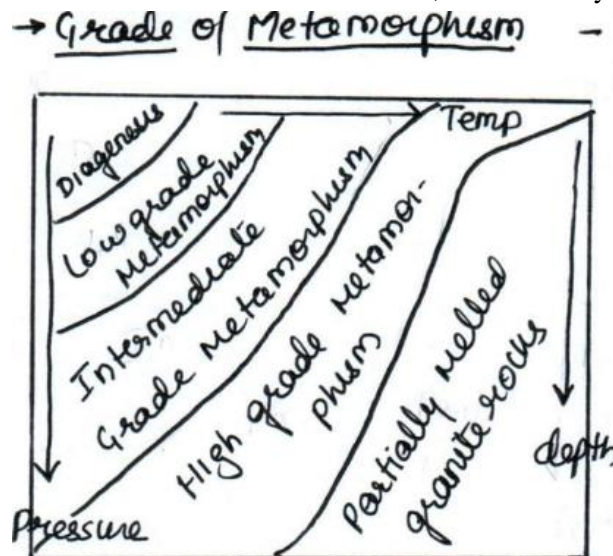 → Grade of Metamorphism -
Temp
Diagenesis
Low grade
Metamorphism
Intermediate
Grade Metamorphism
High grade Metamor-
phism
Partially Melled
granite rocks
depth
Pressure